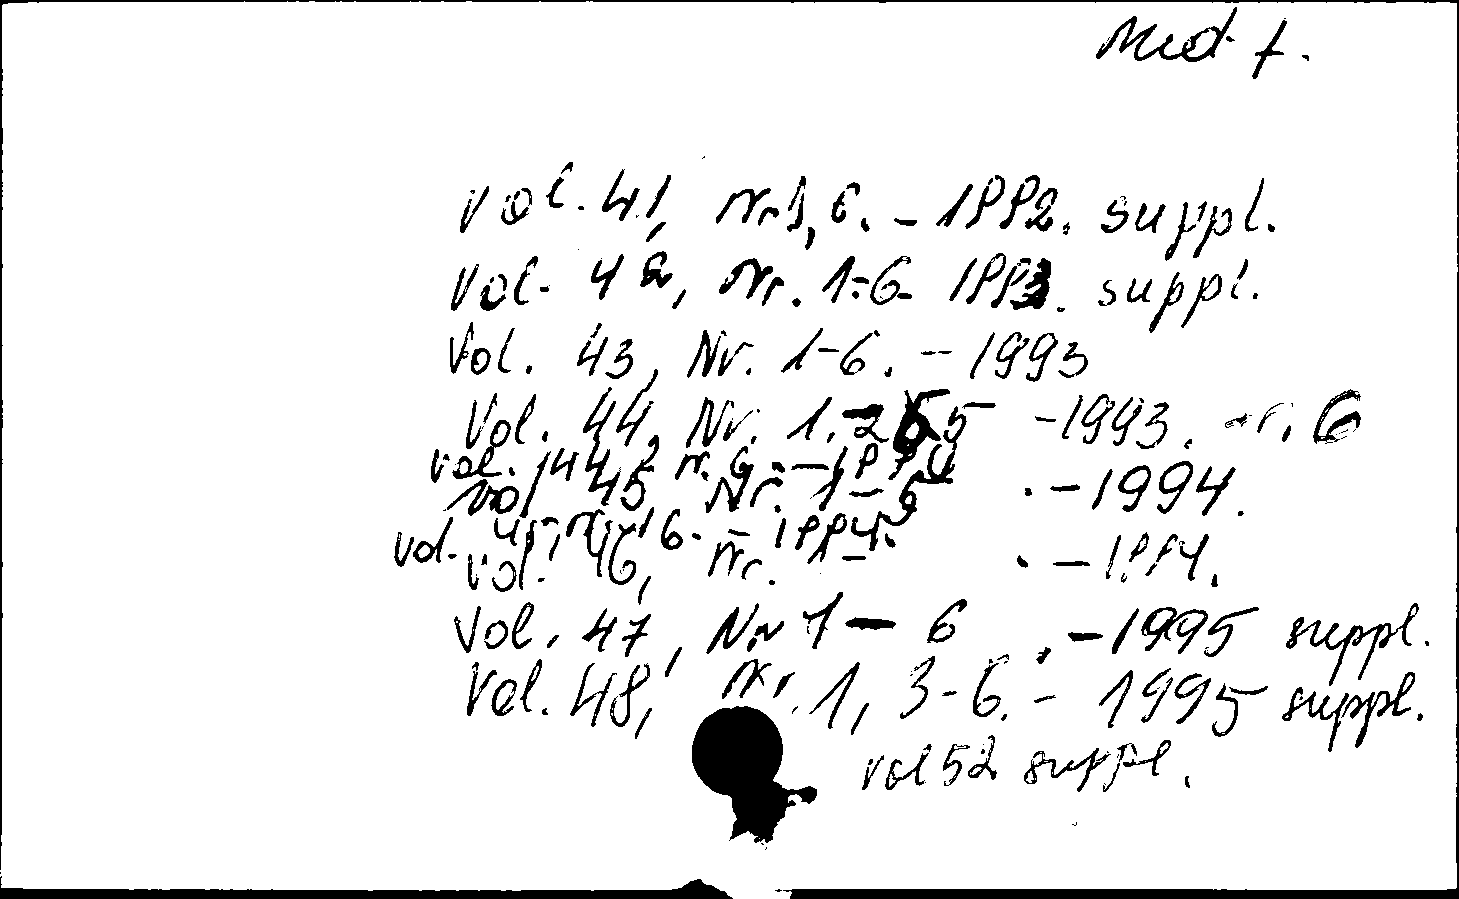 Med f.
Vol. 41, Nr. 1, 6. - 1992. suppl.
Vol. 42, Nr. 1-6 1993. suppl.
Vol. 43, Nr. 1-6. - 1993
Vol. 44, Nr. 1. - 5 - 1993. nr. 6
vol. 44, nr. 6. - 1994
vol 45, Nr. 1-5 . - 1994.
vol. 45, nr. 6. - 1994.
vol. 46, nr. 1- . - 1994.
Vol. 47, Nr 1 - 6 . - 1995 suppl.
Vol. 48, Nr. 1, 3-6. - 1995 suppl.
vol 52 suppl.